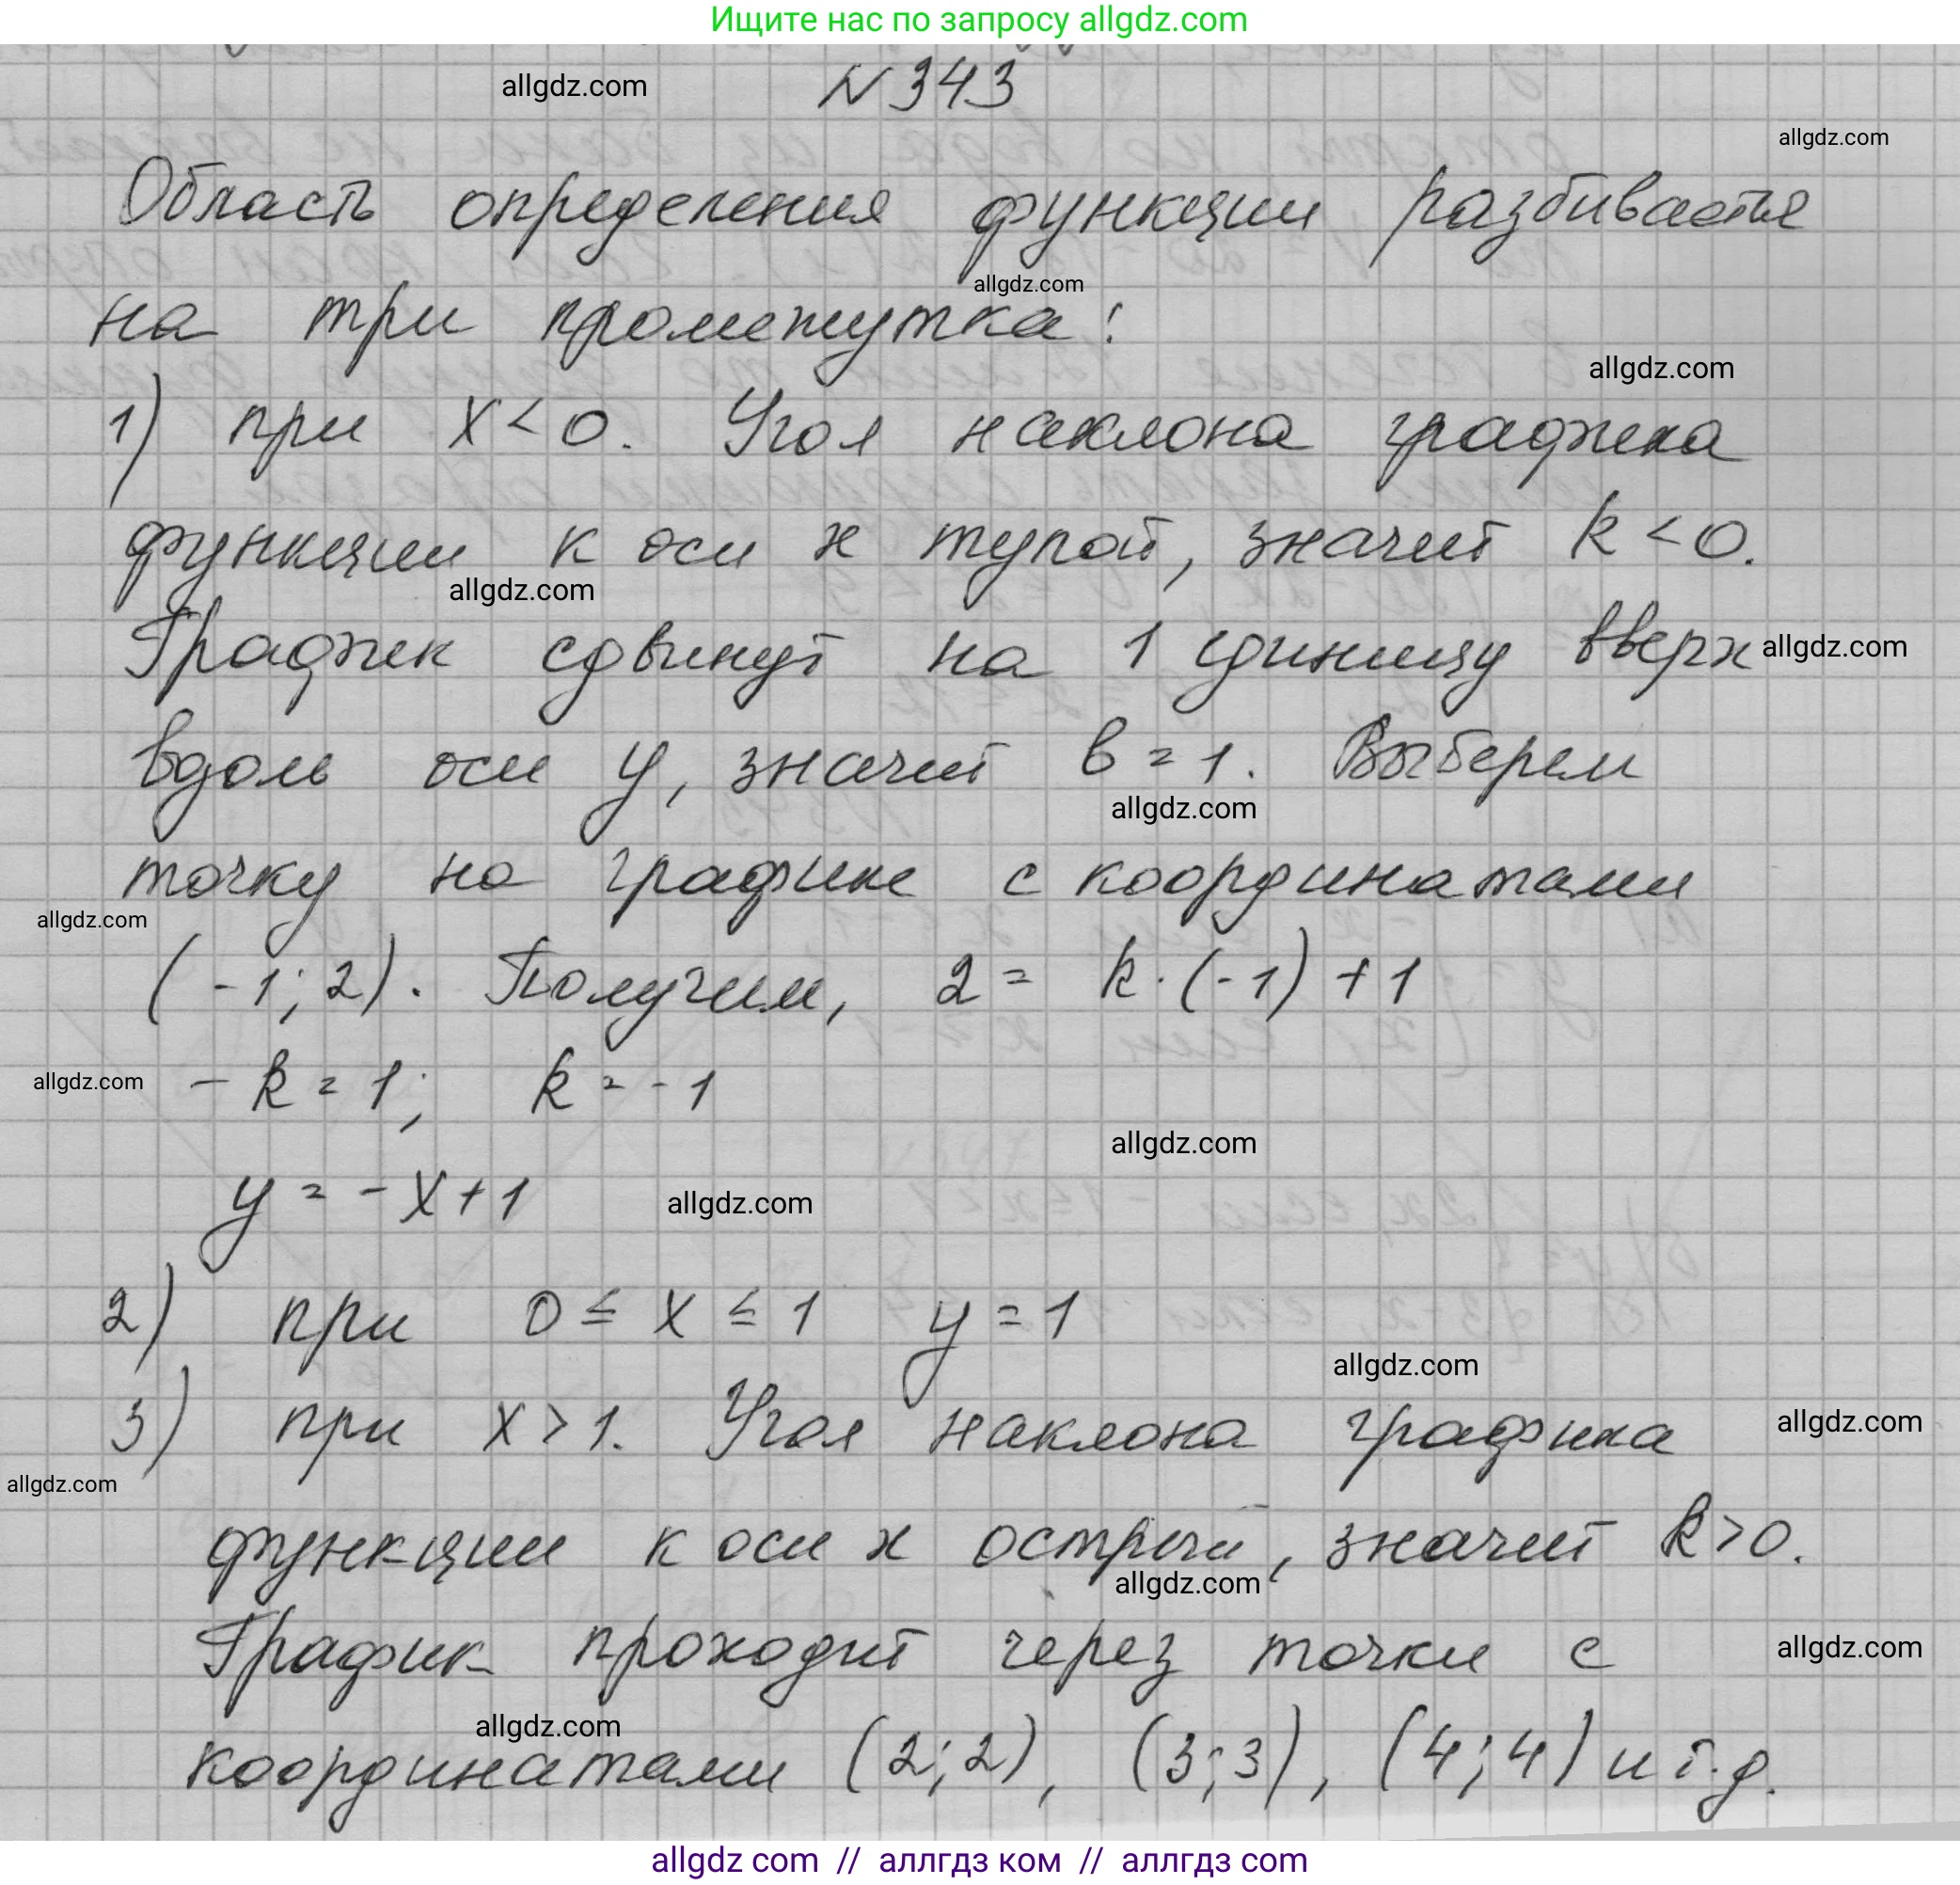 Ищите нас по запросу allgdz.com
allgdz.com
N 343
allgdz.com
Область определения функции разбивается
allgdz.com
на три промежутка:
allgdz.com
1) при x < 0. Угол наклона графика
функции к оси x тупой, значит k < 0.
allgdz.com
График сдвинут на 1 единицу вверх
allgdz.com
вдоль оси y, значит b = 1. Выберем
allgdz.com
точку на графике с координатами
allgdz.com
(-1; 2). Получим, 2 = k · (-1) + 1
allgdz.com
- k = 1; k = -1
allgdz.com
y = - x + 1
allgdz.com
2) при 0 ≤ x ≤ 1 y = 1
allgdz.com
3) при x > 1. Угол наклона графика
allgdz.com
allgdz.com
функции к оси x острый, значит k > 0.
allgdz.com
График проходит через точки с
allgdz.com
allgdz.com
координатами (2; 2), (3; 3), (4; 4) и т.д.
allgdz com // аллгдз ком // аллгдз com